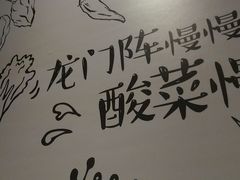 龙门阵慢慢
酸菜慢